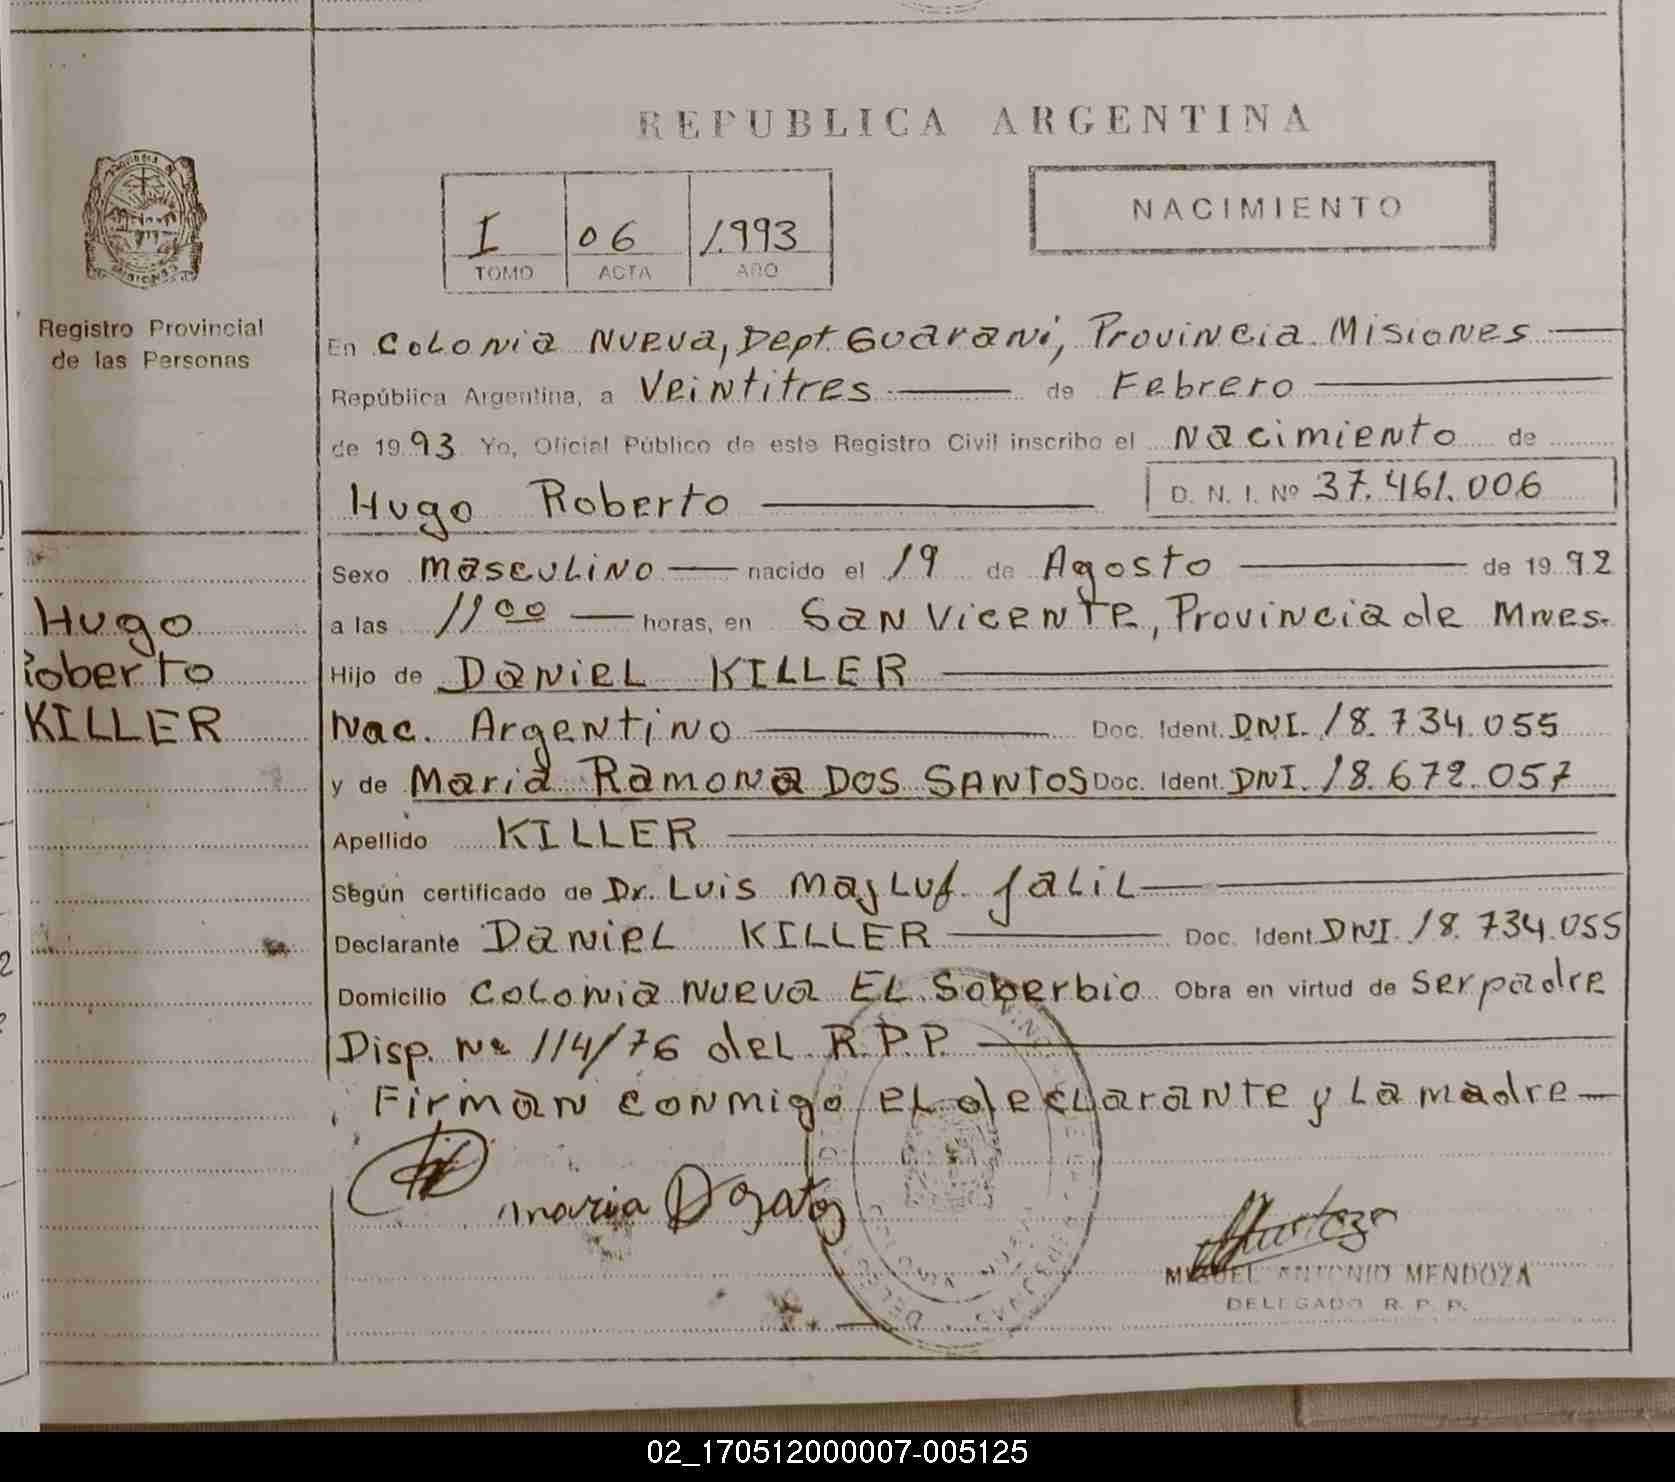 REPUBLICA ARGENTINA
NACIMIENTO
I 06 1993
TOMO ACTA AÑO
Registro Provincial
de las Personas
En Colonia Nueva, Dept. Guarani, Provincia Misiones
República Argentina, a Veintitres de Febrero
de 1993 Yo, Oficial Público de este Registro Civil inscribo el Nacimiento de
Hugo Roberto D. N. I. Nº 37.461.006
Sexo masculino nacido el 19 de Agosto de 1992
a las 11 00 horas, en San Vicente, Provincia de Mnes.
Hijo de Daniel KILLER
Nac. Argentino Doc. Ident. DNI. 18.734.055
y de Maria Ramona DOS SANTOS Doc. Ident. DNI. 18.672.057
Apellido KILLER
Según certificado de Dr. Luis Majluf Jalil
Declarante Daniel KILLER Doc. Ident. DNI. 18.734.055
Domicilio Colonia Nueva El Soberbio Obra en virtud de ser padre
Disp. Nº 114/76 del R.P.P.
Firman conmigo el declarante y la madre
Hugo
Roberto
KILLER
maria D
MIGUEL ANTONIO MENDOZA
DELEGADO R. P. P.
02_170512000007-005125